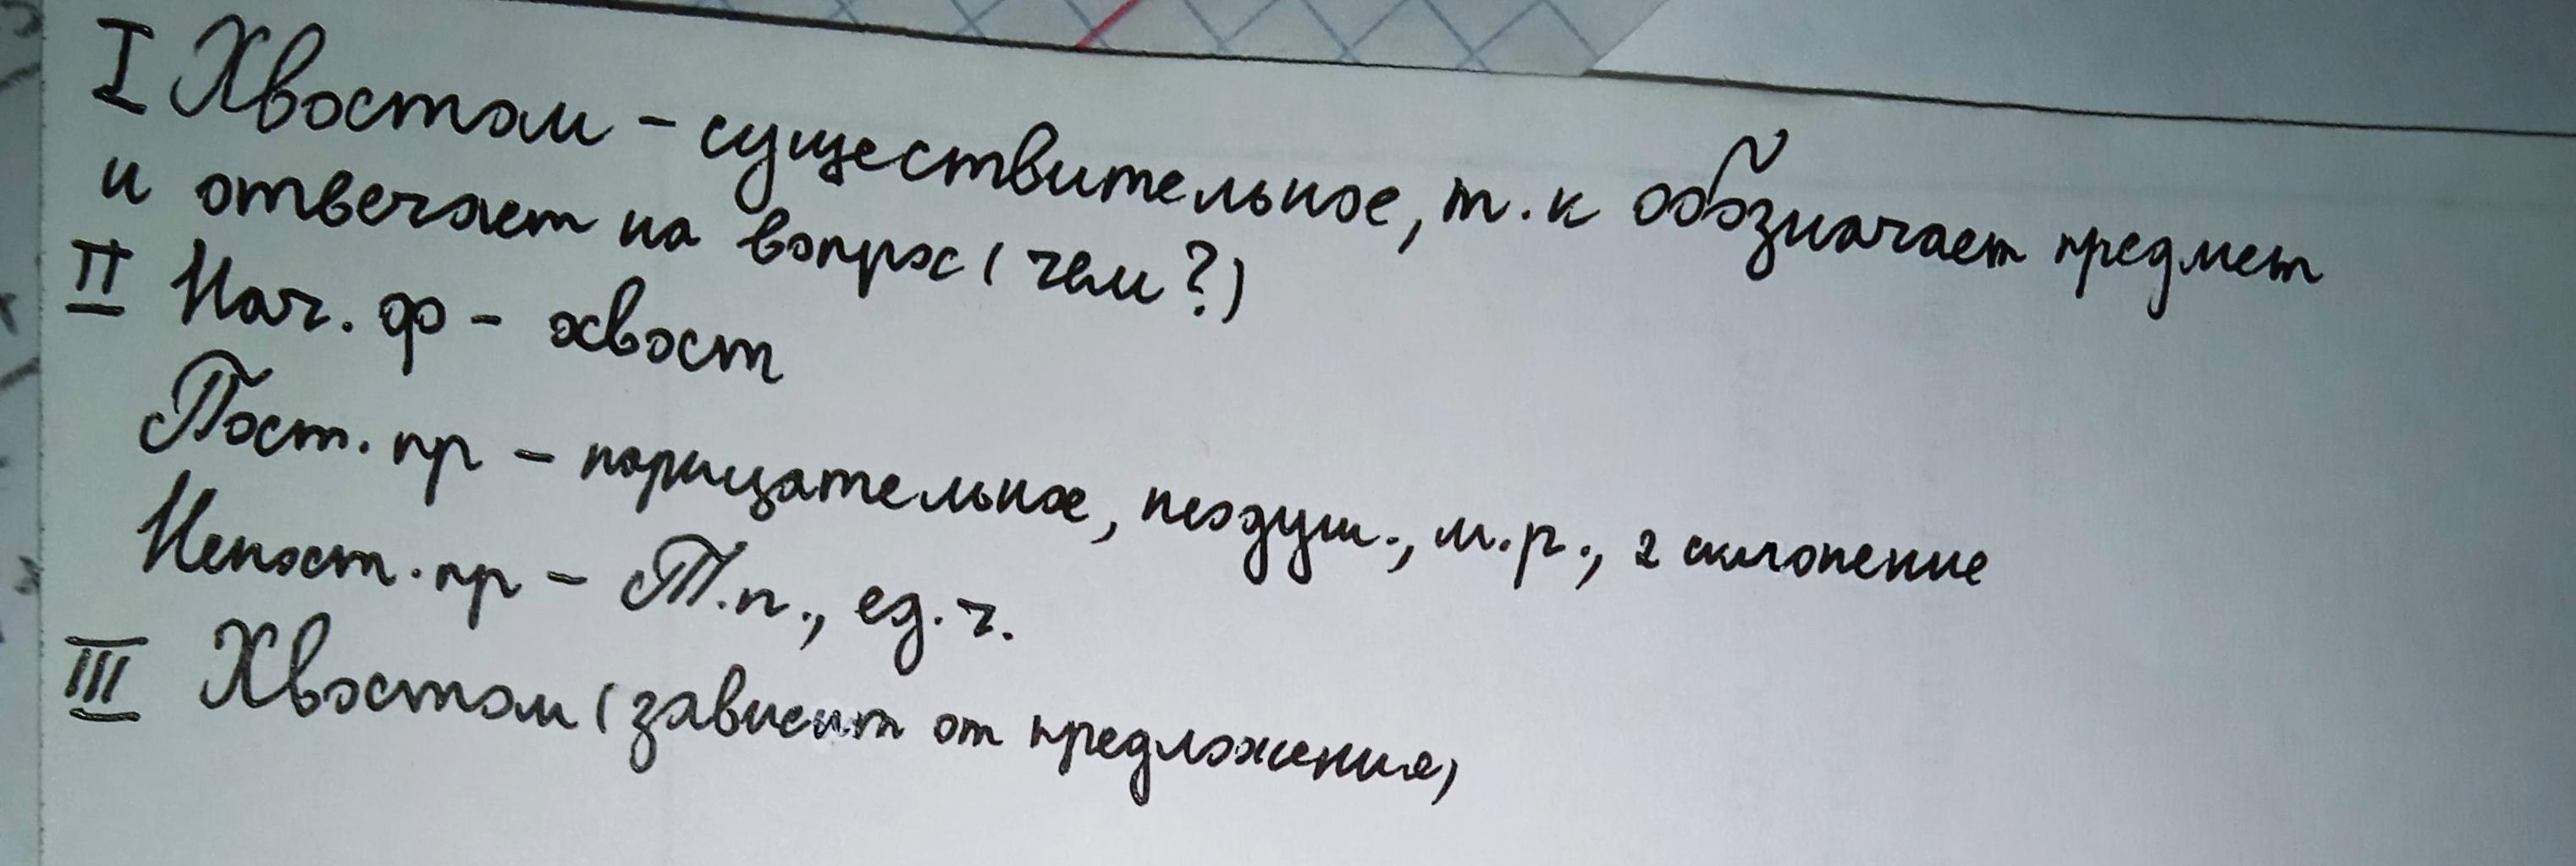 I Хвостом - существительное, т.к обозначает предмет
и отвечает на вопрос (чем?)
II Нач. ф - хвост
Пост. пр - нарицательное, неодуш., м.р., 2 склонение
Непост. пр - Т.п., ед. ч.
III Хвостом (зависит от предложения)